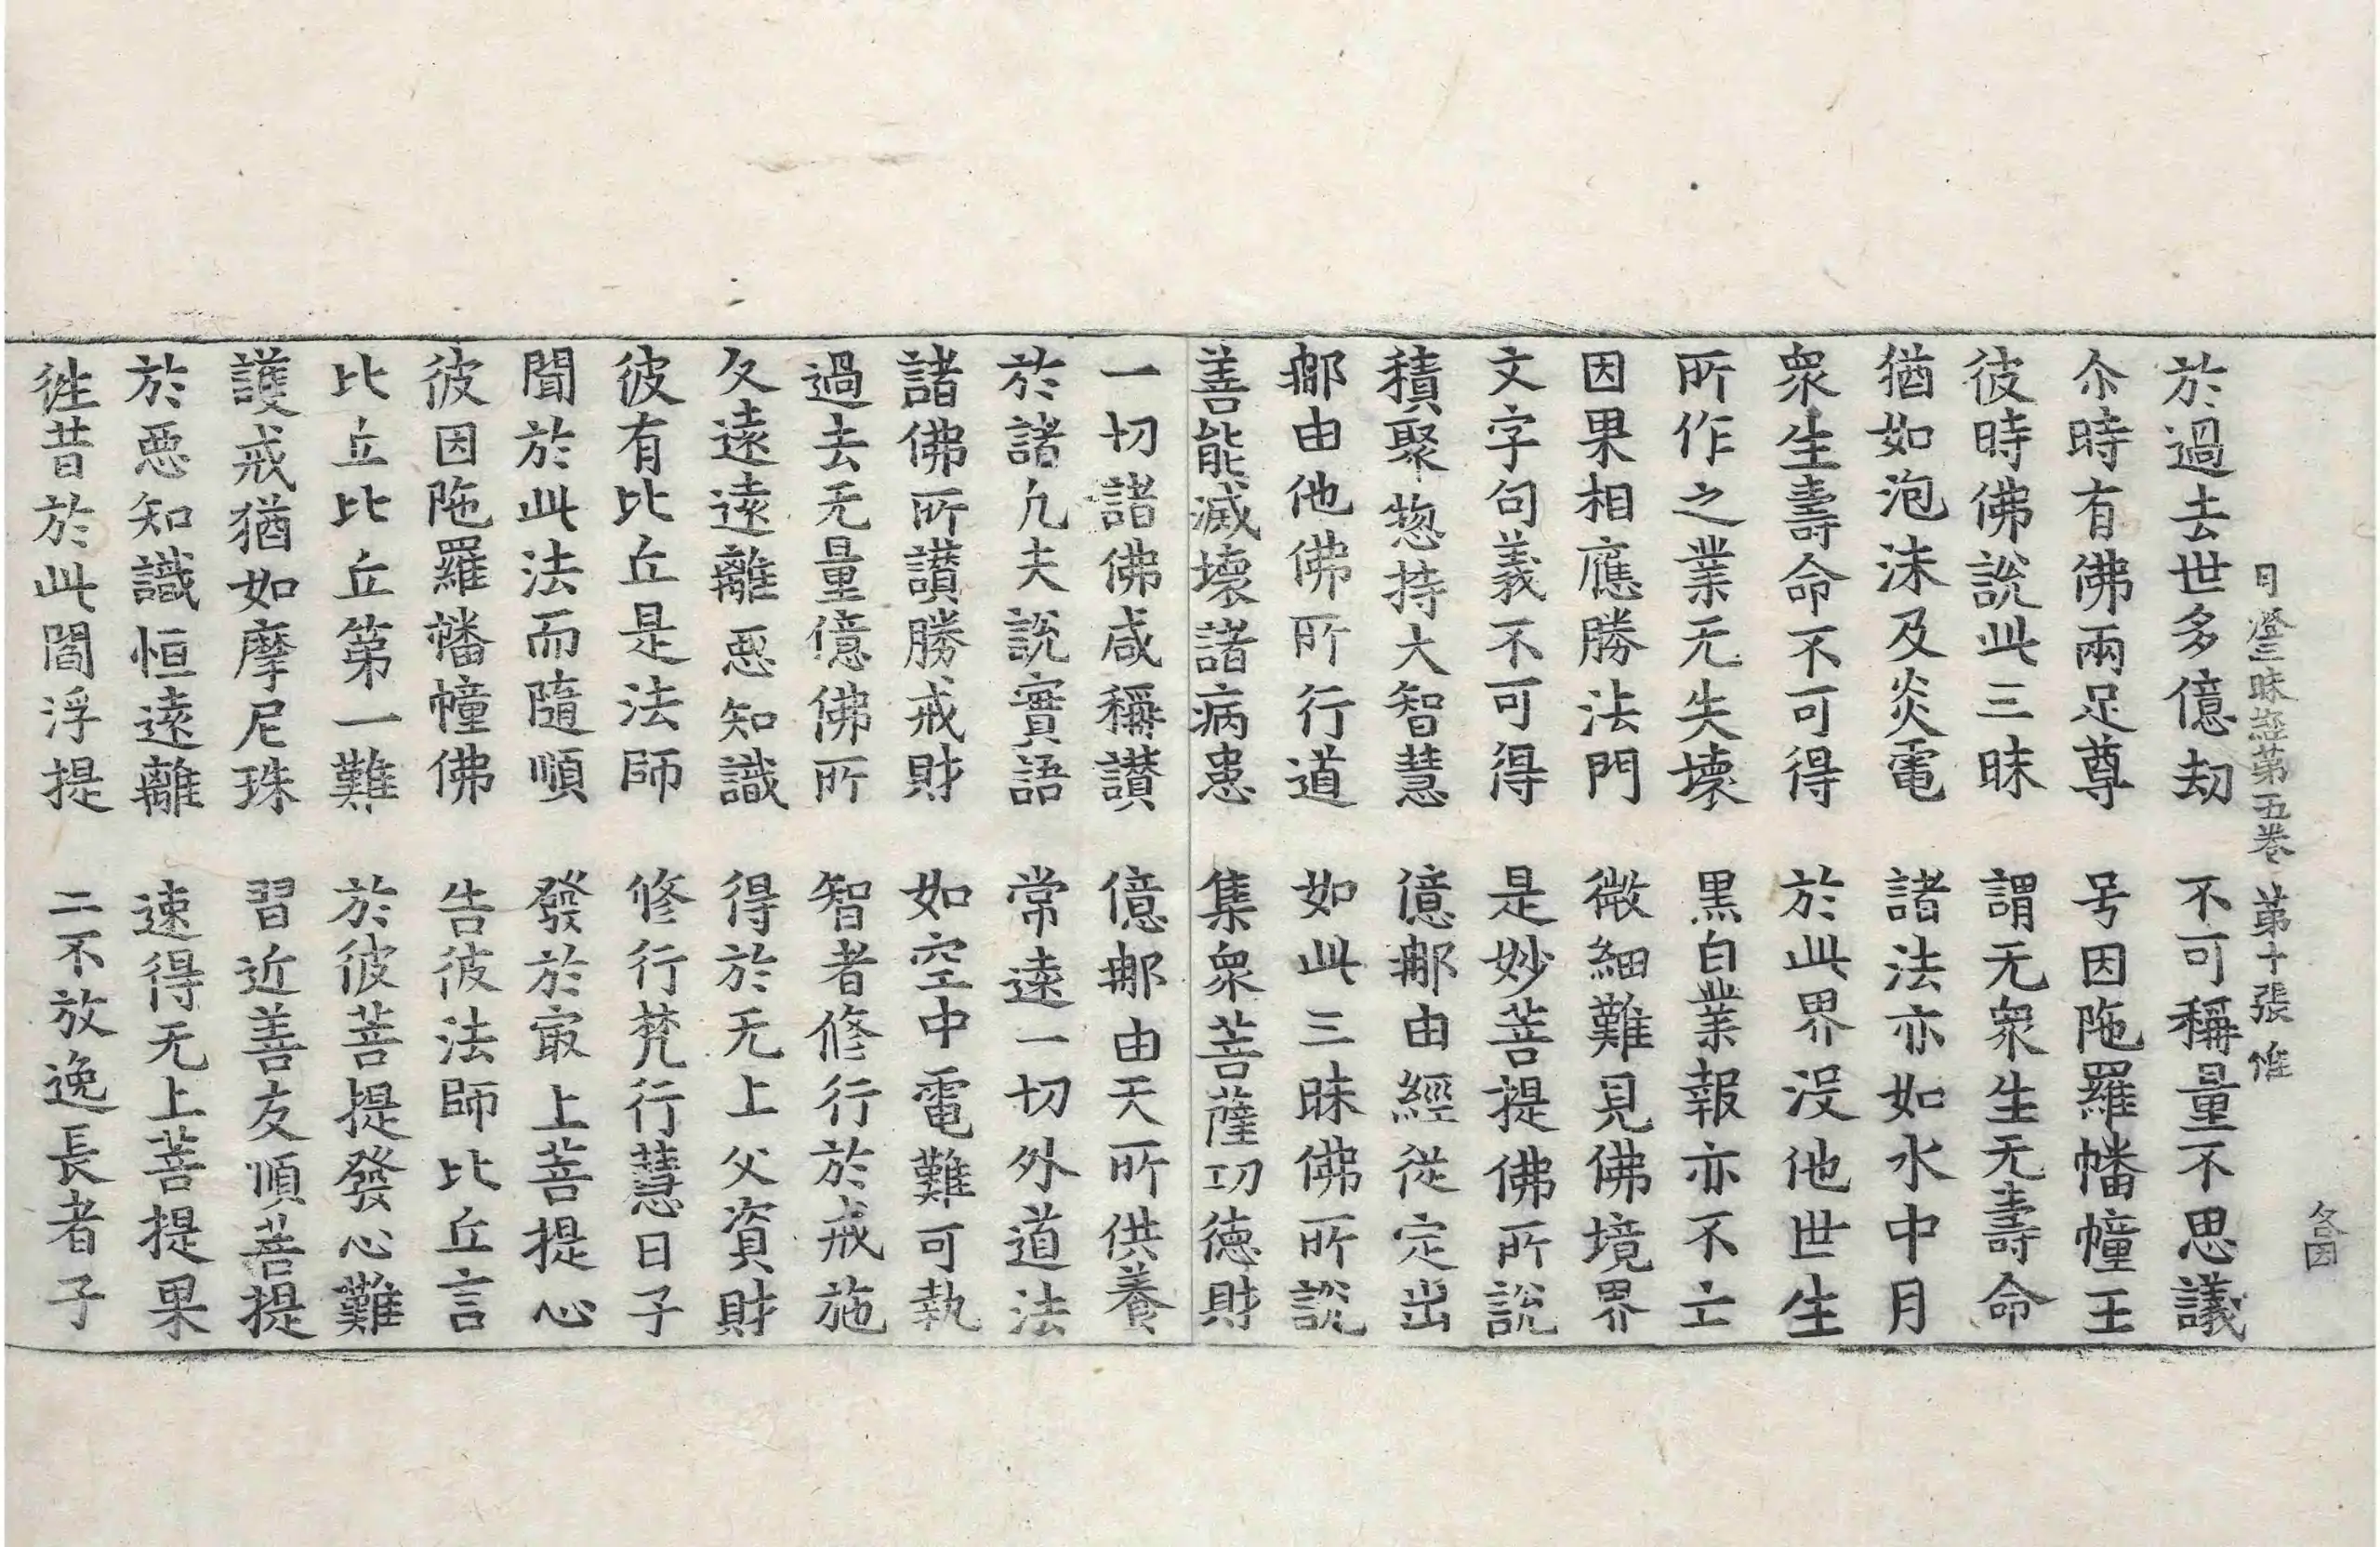 月燈三昧經第五卷 第十張 惟
於過去世多億劫 不可稱量不思議
尒時有佛兩足尊 号因陁羅幡幢王
彼時佛說此三昧 謂无衆生无壽命
猶如泡沫及炎電 諸法亦如水中月
衆生壽命不可得 於此界沒他世生
所作之業无失壞 黑白業報亦不亡
因果相應勝法門 微細難見佛境界
文字句義不可得 是妙菩提佛所說
積聚惣持大智慧 億郍由經從定出
郍由他佛所行道 如此三昧佛所說
善能滅壞諸病患 集衆菩薩功德財
一切諸佛咸稱讃 億郍由天所供養
於諸凢夫說實語 常遠一切外道法
諸佛所讃勝戒財 如空中電難可執
過去无量億佛所 智者修行於戒施
久遠遠離惡知識 得於无上父資財
彼有比丘是法師 修行梵行慧日子
聞於此法而隨順 發於㝡上菩提心
彼因陁羅幡幢佛 告彼法師比丘言
比丘比丘第一難 於彼菩提發心難
護戒猶如摩尼珠 習近善友順菩提
於惡知識恒遠離 速得无上菩提果
徃昔於此閻浮提 二不放逸長者子